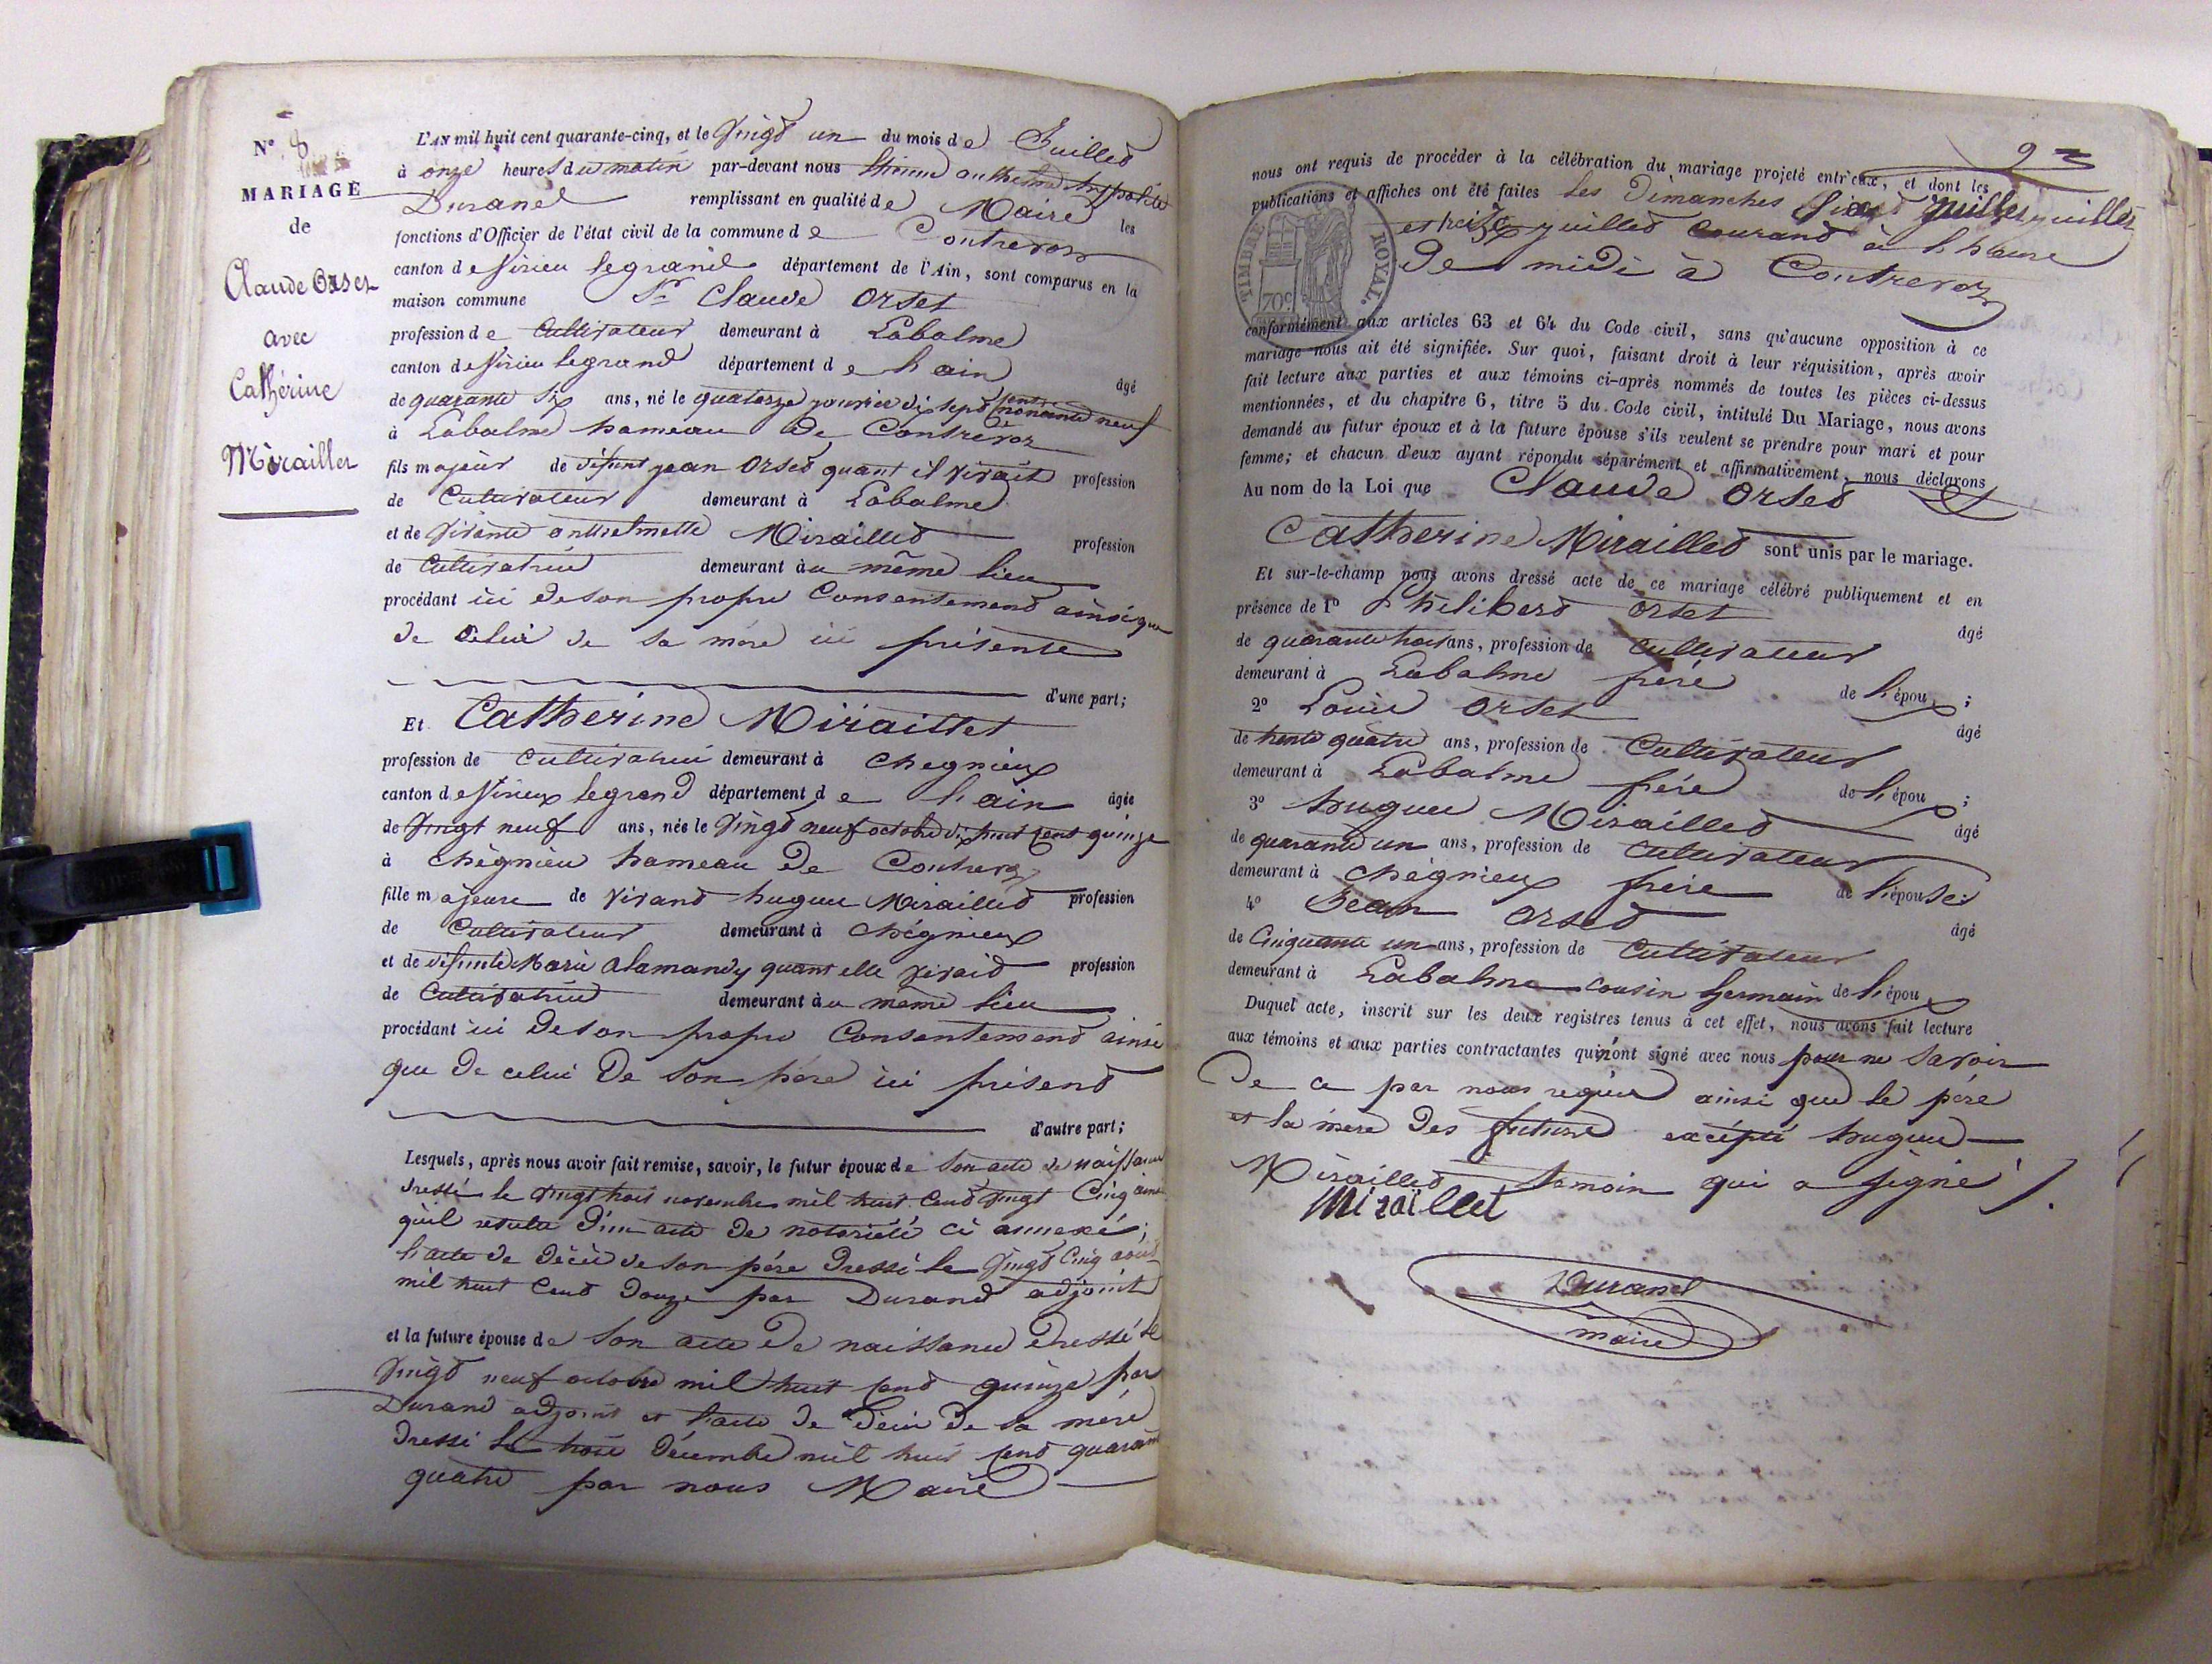 N° 8
MARIAGE
de
Claude Orset
avec
Cathérine
Miraillet
L'AN mil huit cent quarante-cinq, et le vingt un du mois de Juillet
à onze heures du matin par-devant nous anthelme hyppolite
Durand remplissant en qualité de Maire les
fonctions d'Officier de l'état civil de la commune de Contrevoz
canton de Virieu legrand département de l'Ain, sont comparus en la
maison commune Sr Claude Orset
profession de Cultivateur demeurant à Labalme
canton de Virieu legrand département de l'ain âgé
de quarante six ans, né le quatorze janvier dix sept cent nonante neuf
à Labalme hameau de Contrevoz
fils majeur de défunt jean Orset quant il vivait profession
de Cultivateur demeurant à Labalme
et de vivante anthelmette Miraillet profession
de Cultivatrice demeurant au même lieu
procédant ici de son propre Consentement ainsi que
de celui de sa mère ici présente
d'une part;
Et Catherine Miraillet
profession de Cultivatrice demeurant à Chegnieux
canton de Virieux legrand département de l'ain âgée
de vingt neuf ans, née le vingt neuf octobre dix huit cent quinze
à Chègnieu hameau de Contrevoz
fille majeure de vivant hugue Miraillet profession
de Cultivateur demeurant à Chégnieux
et de défunte Marie alamandy quant elle vivait profession
de Cultivatrice demeurant au même lieu
procédant ici de son propre Consentement ainsi
que de celui de son père ici présent
d'autre part;
Lesquels, après nous avoir fait remise, savoir, le futur époux de son acte de naissance
dressé le vingt trois novembre mil huit cent vingt Cinq ainsi
qu'il résulte d'un acte de notoriété ci annexé;
l'acte de décès de son père dressé le vingt Cinq août
mil huit Cent douze par Durand adjoint
et la future épouse de son acte de naissance dressé le
vingt neuf octobre mil huit cent quinze par
Durand adjoint et l'acte de décès de sa mère
dressé le trois décembre mil huit cent quarante
quatre par nous Maire
nous ont requis de procéder à la célébration du mariage projeté entr'eux, et dont les
publications et affiches ont été faites les Dimanches six juillet
et treize juillet courant à l'heure
de midi à Contrevoz
TIMBRE ROYAL.
70c
conformément aux articles 63 et 64 du Code civil, sans qu'aucune opposition à ce
mariage nous ait été signifiée. Sur quoi, faisant droit à leur réquisition, après avoir
fait lecture aux parties et aux témoins ci-après nommés de toutes les pièces ci-dessus
mentionnées, et du chapitre 6, titre 5 du Code civil, intitulé Du Mariage, nous avons
demandé au futur époux et à la future épouse s'ils veulent se prendre pour mari et pour
femme; et chacun d'eux ayant répondu séparément et affirmativement, nous déclarons
Au nom de la Loi que Claude Orset et
Catherine Miraillet sont unis par le mariage.
Et sur-le-champ nous avons dressé acte de ce mariage célébré publiquement et en
présence de 1° Philibert Orset âgé
de quarante trois ans, profession de Cultivateur
demeurant à Labalme frère de l'époux;
2° Louis Orset âgé
de trente quatre ans, profession de Cultivateur
demeurant à Labalme frère de l'époux;
3° hugue Miraillet âgé
de quarante un ans, profession de Cultivateur
demeurant à Chégnieux frère de l'épouse:
4° Jean Orset âgé
de Cinquante un ans, profession de Cultivateur
demeurant à Labalme cousin Germain de l'époux
Duquel acte, inscrit sur les deux registres tenus à cet effet, nous avons fait lecture
aux témoins et aux parties contractantes qui n'ont signé avec nous pour ne savoir
de ce par nous requis ainsi que le père
et la mère des future excépté hugue
Miraillet témoin qui a signé
Miraillet
Durand
maire